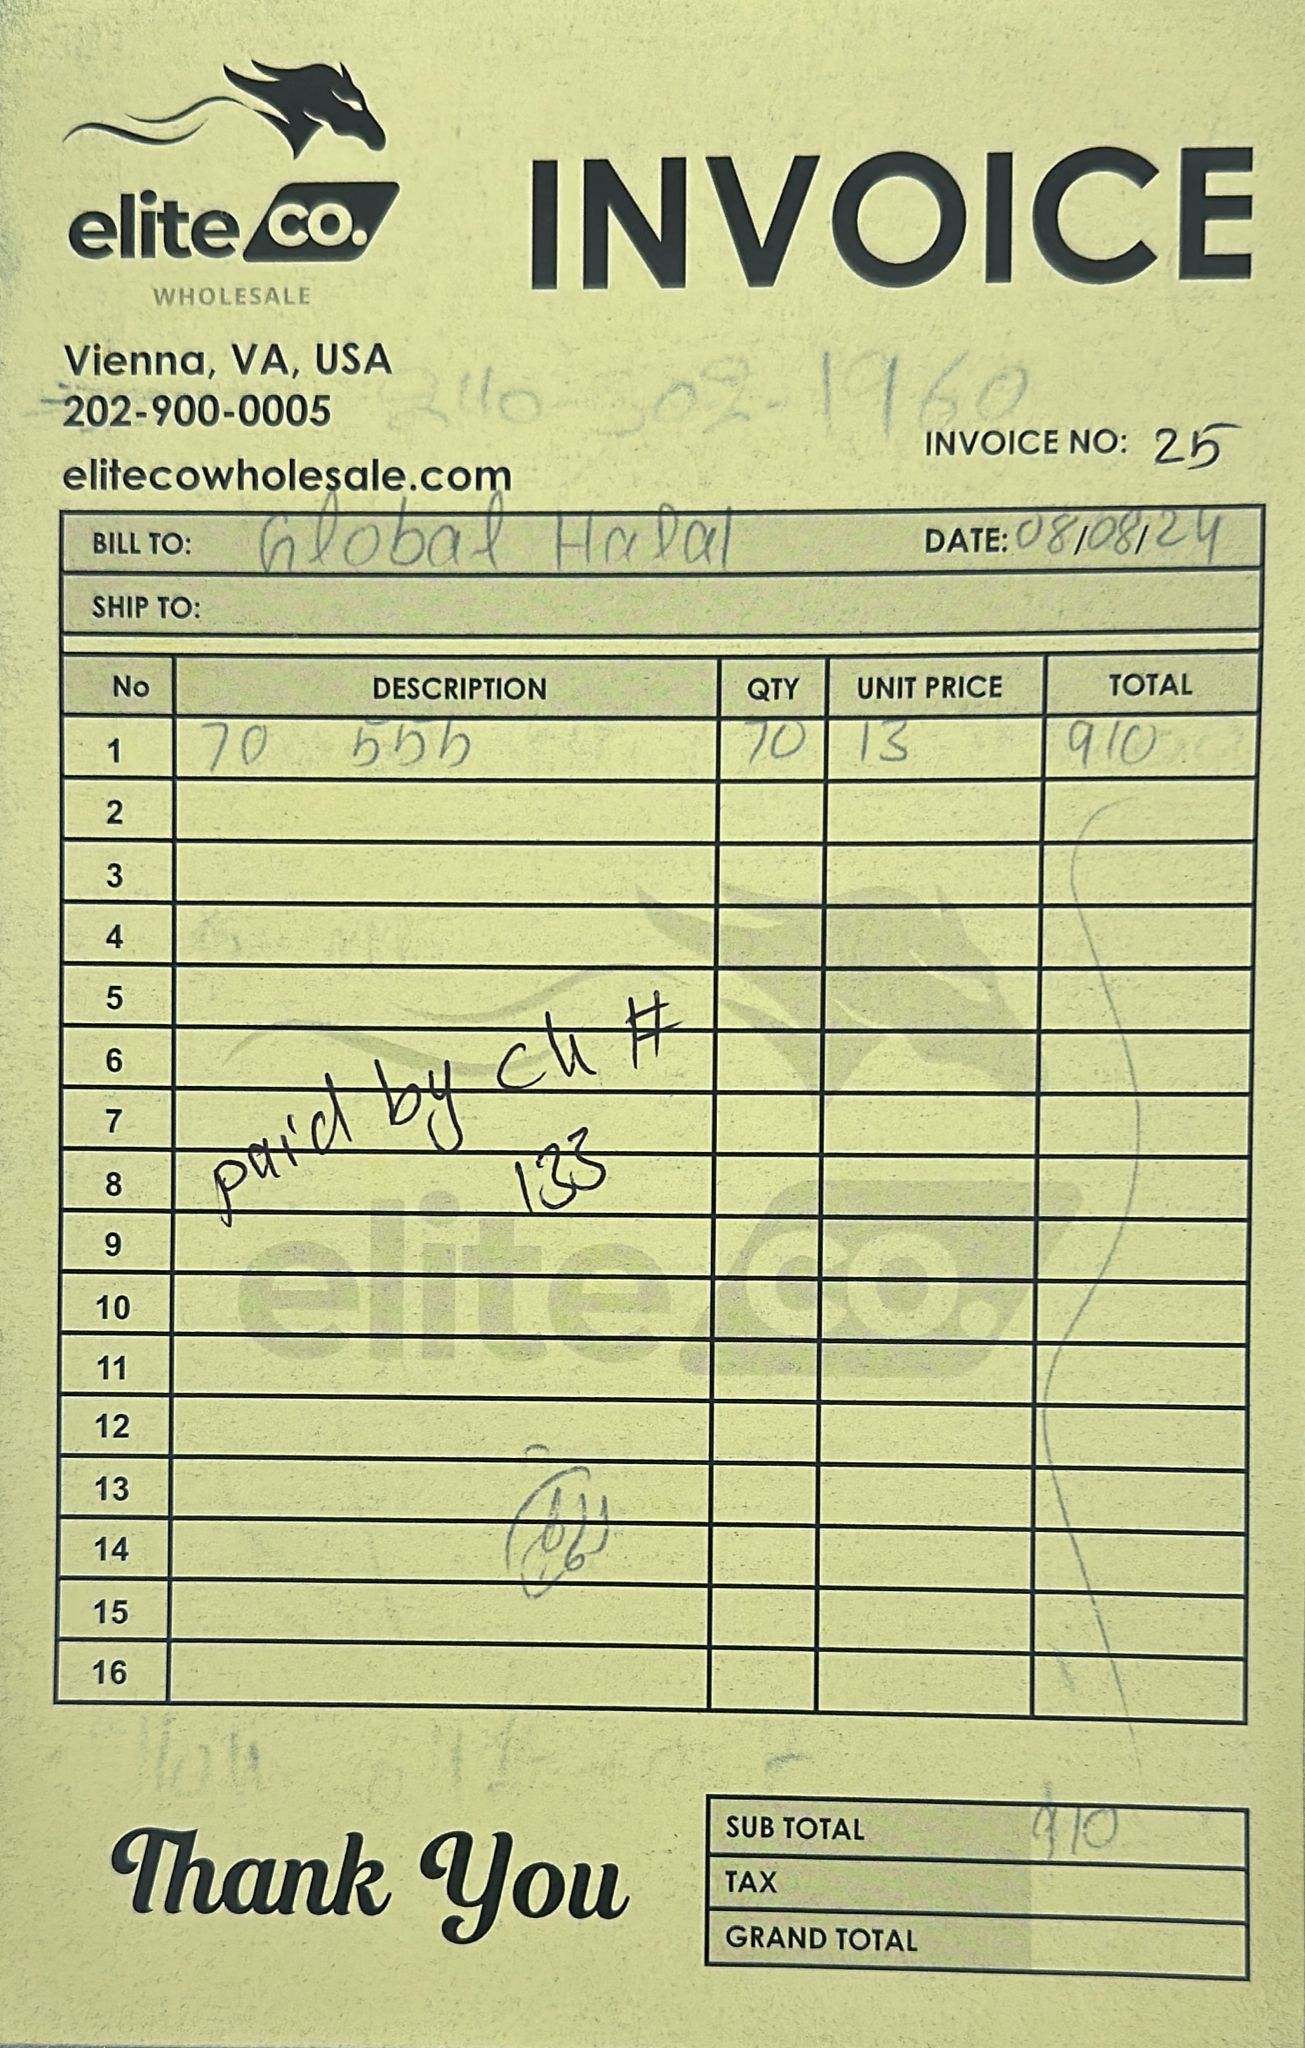 elite co.
WHOLESALE
INVOICE
Vienna, VA, USA
202-900-0005
240-502-1960
elitecowholesale.com
INVOICE NO: 25
BILL TO: Global Halal DATE: 08/08/24
SHIP TO:
No DESCRIPTION QTY UNIT PRICE TOTAL
1 70 555 70 13 910
2
3
4
5
6
7
8
9
10
11
12
13
14
15
16
paid by ck #
133
elite co.
Thank You
SUB TOTAL 910
TAX
GRAND TOTAL